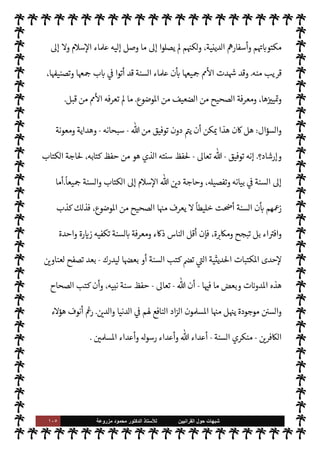 مكتوباتهم وأسفارهم الدينية، ولكنهم لم يصلوا إلى ما وصل إليه علماء الإسلام ولا إلى
قريب منه. وقد شهدت الأمم جميعها بأن علماء السنة قد أتوا في باب جمعها وتصنيفها،
وتمييزها، ومعرفة الصحيح من الضعيف من الموضوع. ما لم تعرفه الأمم من قبل.
والسؤال: هل كان هذا يمكن أن يتم دون توفيق من الله - سبحانه - وهداية ومعونة
وإرشاد؟. إنه توفيق - الله تعالى - لحفظ سنته الذي هو من حفظ كتابه، لحاجة الكتاب
إلى السنة في بيانه وتفصيله، وحاجة دين الله الإسلام إلى الكتاب والسنة جميعاً.أما
زعمهم بأن السنة أضحت خليطاً لا يعرف منها الصحيح من الموضوع، فذلك كذب
وافتراء بل تبجح ومكابرة، فإن أقل الناس ذكاء ومعرفة بالسنة تكفيه زيارة واحدة
لإحدى المكتبات الحديثية التي تضم كتب السنة أو بعضها ليدرك - بعد تصفح لعناوين
هذه المدونات وبعض ما فيها - أن الله - تعالى - حفظ سنة نبيه، وأن كتب الصحاح
والسنن موجودة ينهل منها المسلمون الزاد النافع لهم في الدنيا والدين. رغم أنوف هؤلاء
الكافرين - منكري السنة - أعداء الله وأعداء رسوله وأعداء المسلمين .
شبهات حول القرآنيين للأستاذ الدكتور محمود مزروعة ١٠٥